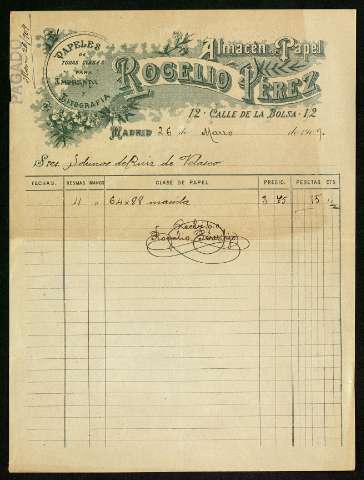 PAGADO
PAPELES
DE
TODAS CLASES
PARA
IMPRENTA
LITOGRAFIA
Almacén de Papel
ROGELIO PEREZ
12 · CALLE DE LA BOLSA · 12
MADRID 26 de Marzo de 1909.
Sres. de Ruiz de Velasco
FECHAS. RESMAS MANOS CLASE DE PAPEL PRECIO. PESETAS CTS.
4 " 64 x 88 3 75 15
Recibí
Rogelio